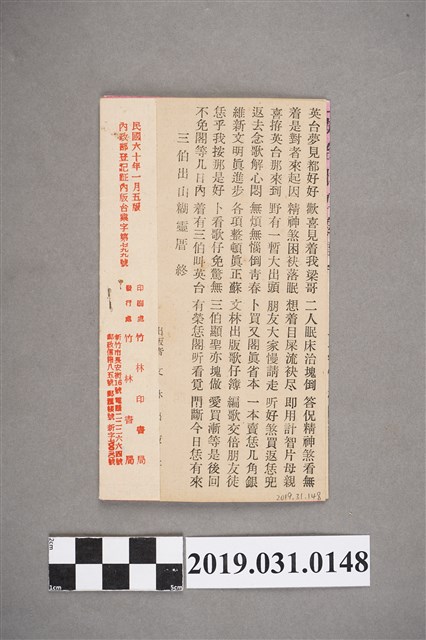 英台夢見都好好 歡喜見着我梁哥 二人眠床治塊倒 答侃精神煞看無
着是對者來起因 精神煞困扶落眠 想着目屎流袂尽 即用計智片母親
喜撪英台那來到 野有一暫大出頭 朋友大家慢請走 听好煞買返恁兜
返去念歌解心悶 無煩無惱倒青春 卜買又閣眞省本 一本賣恁几角銀
維新文明眞進步 各項整頓眞正蘇 文林出版歌仔簿 編歌交倍朋友徒
恁乎我按那是好 卜看歌仔免驚無 三伯顯聖亦塊做 愛買漸等是後回
不免閣等几日內 着有三伯叫英台 有榮恁閣听看覓 門斷今日恁有來
三伯出山糊靈厝 終
民國六十年一月五版
內政部登記証內版台業字第七九九號
印刷處 竹林印書局
發行處 竹林書局
新竹市長安街16號 電話二二二六六四號
2019.31.148
2cm
1cm
5cm
2019.031.0148